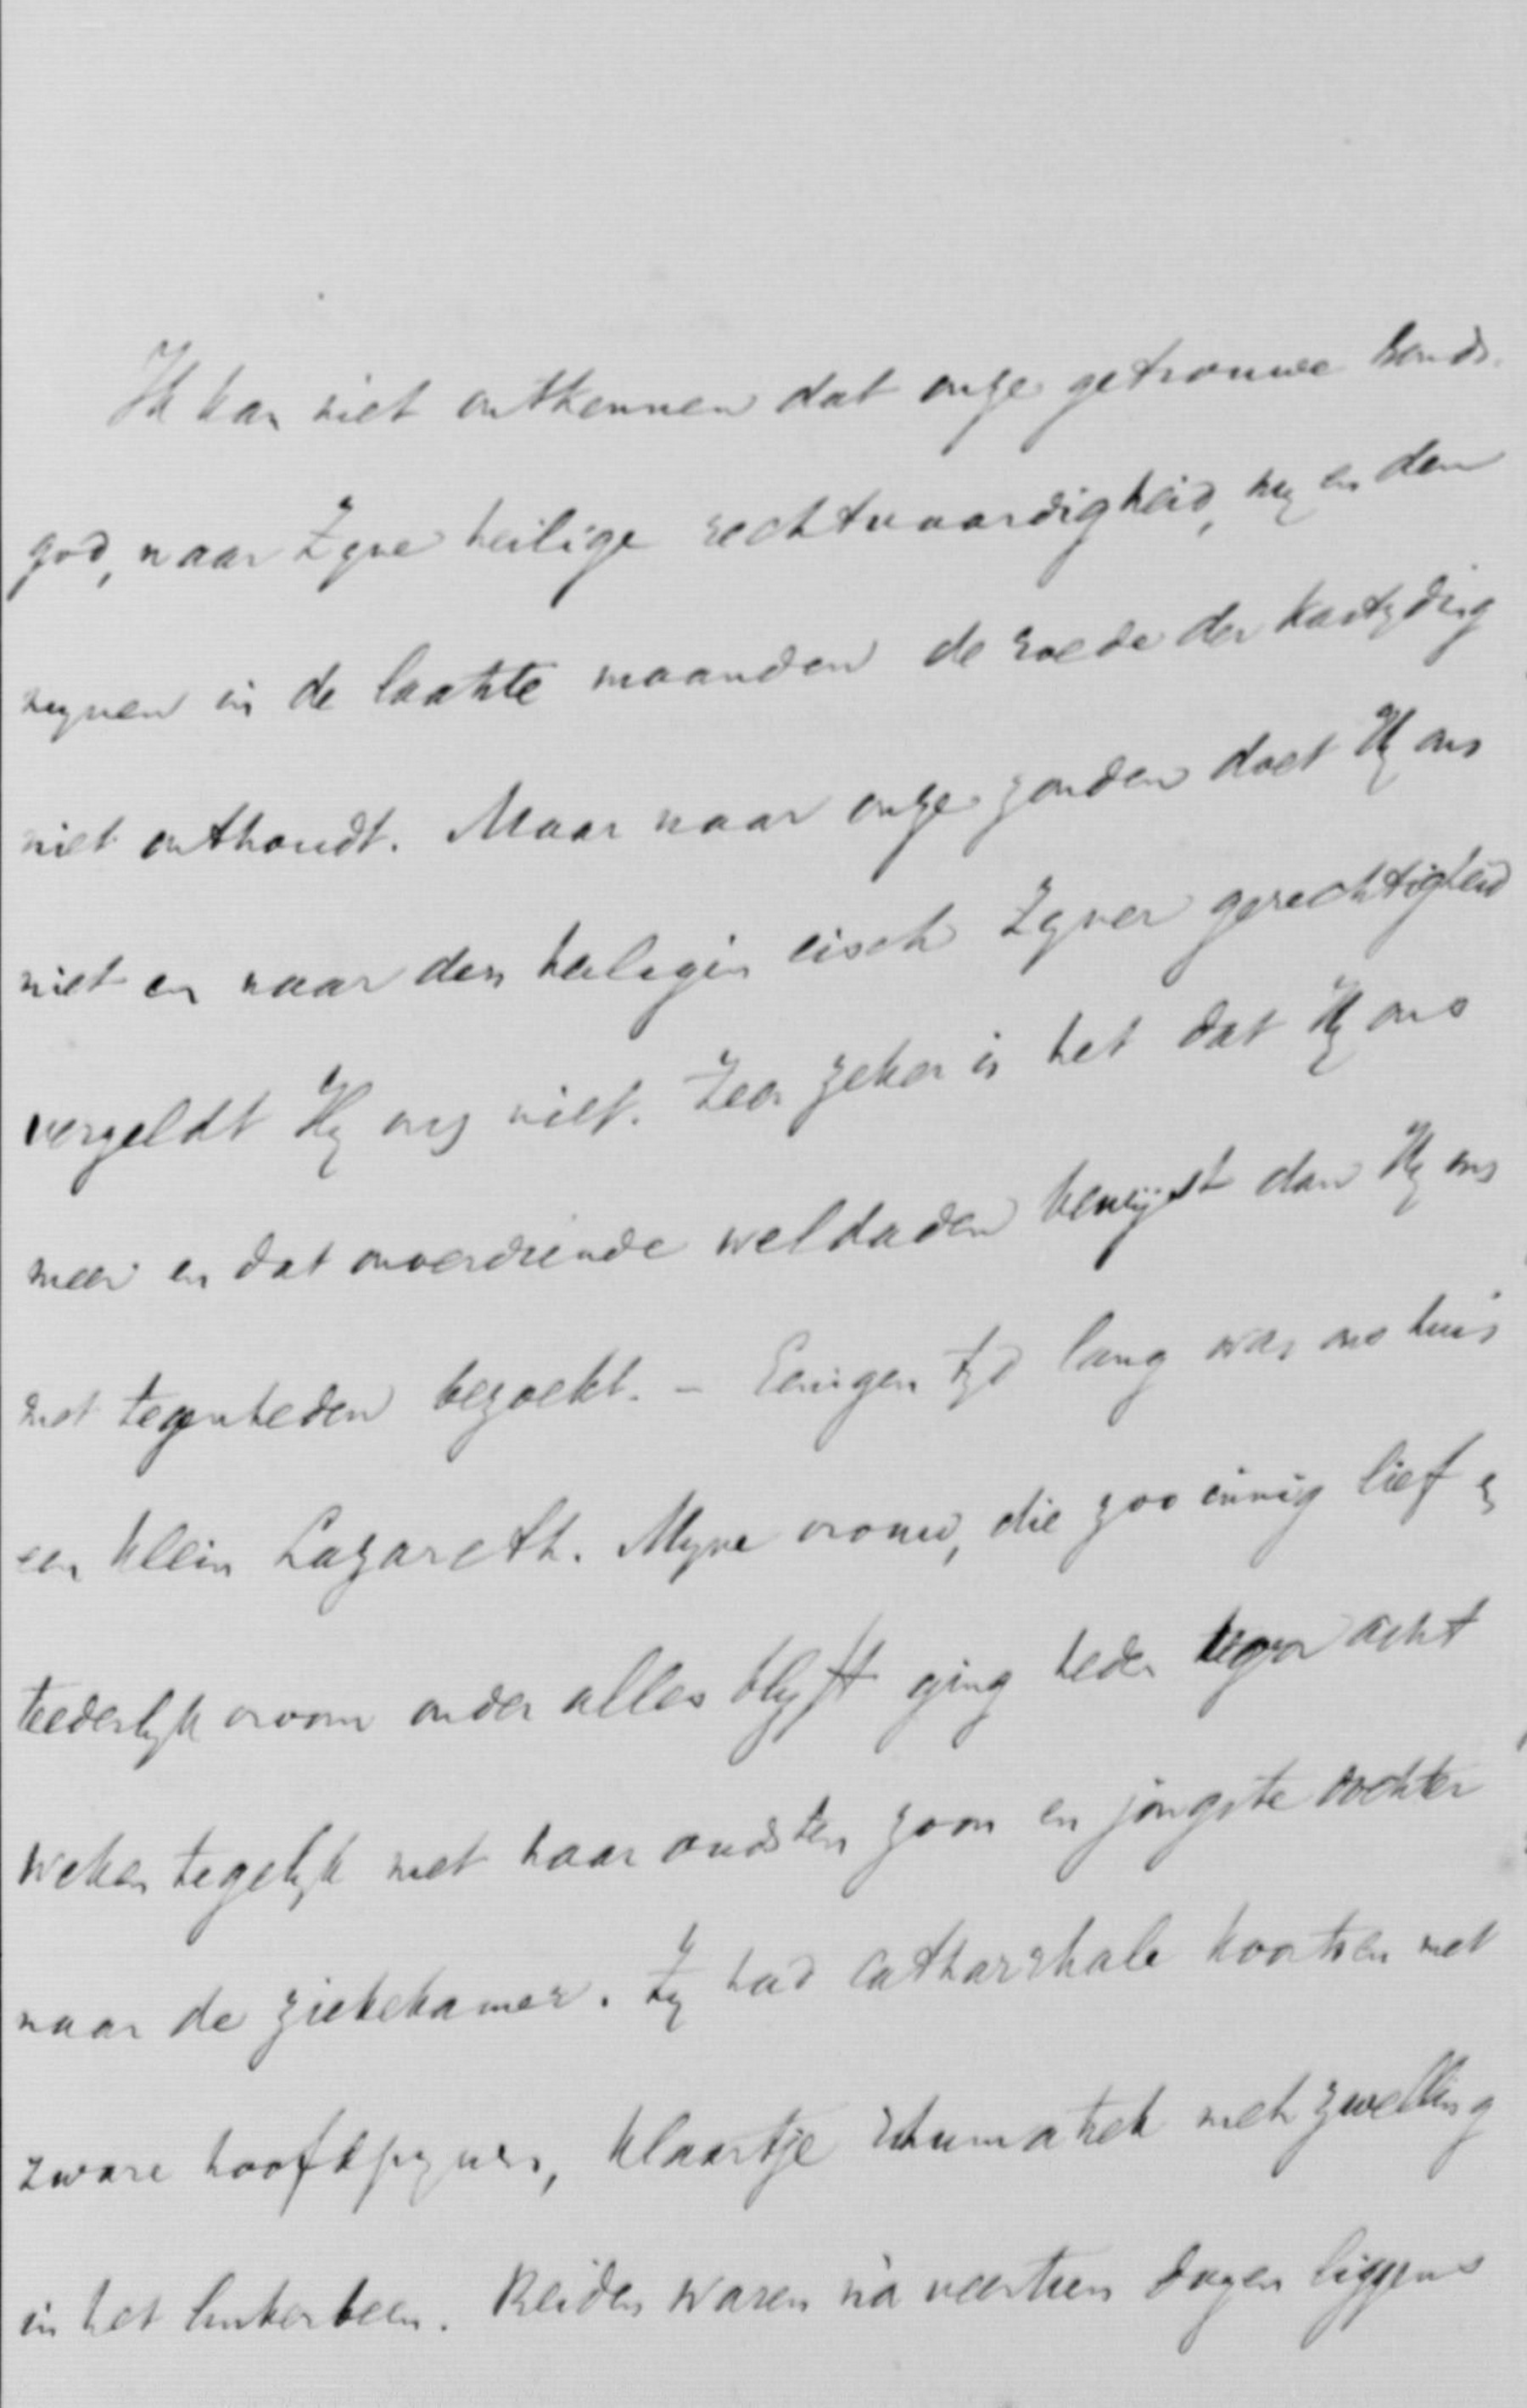 Ik kan niet ontkennen dat onze getrouwe bonds-
god, naar Zyne heilige rechtvaardigheid, my en den
mynen in de laatste maanden de roede der kastyding
niet onthoudt. Maar naar onze zonden doet Hy ons
niet en naar den heiligen eisch Zyner gerechtigheid
vergeldt Hy ons niet. Zeer zeker is het dat Hy ons
meer en dat onverdiende weldaden bewijst dan Hy ons
met tegenheden bezoekt. - Eenigen tyd lang was ons huis
een klein Lazareth. Myne vrouw, die zoo innig lief &
teederlyk vroom onder alles blyft ging heden tegen acht
weken tegelyk met haar oudsten zoon en jongste dochter
naar de ziekekamer. Zy had catharrhale koortsen met
zware hoofdpynen, Klaartje rhumatiek met zwelling
in het linkerbeen. Beiden waren nà veertien dagen liggens